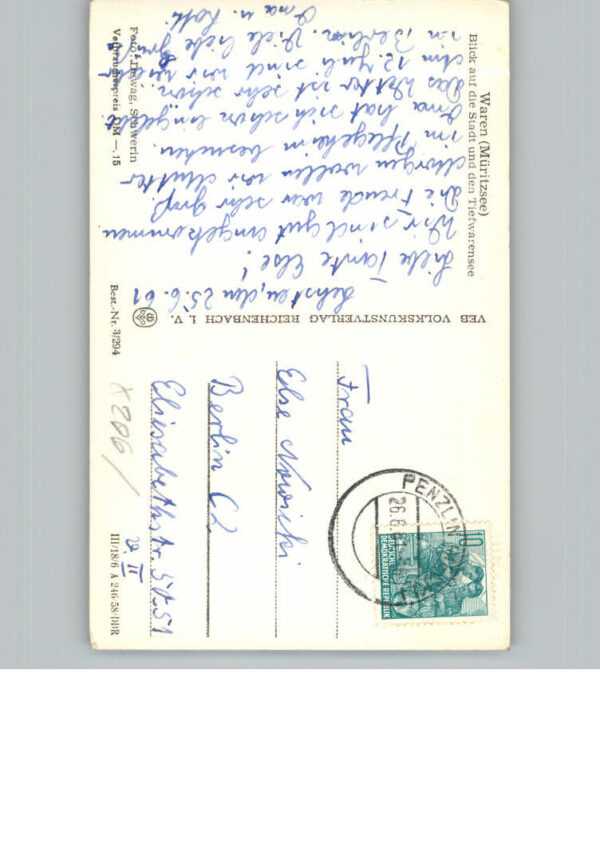 Waren (Müritzsee)
Blick auf die Stadt und den Tiefwarensee
den 25.6.61
Liebe Tante Else!
Wir sind gut angekommen
Die Freude war sehr groß.
Morgen wollen wir Mutter
im Pflegeheim besuchen.
Oma hat sich schon
Das Wetter ist sehr schön.
Am 12 Juli sind wir wieder
in Berlin. Viele liebe Grüße
Oma u.
Foto: Dewag, Schwerin
Verbraucherpreis DM —.15
VEB VOLKSKUNSTVERLAG REICHENBACH I. V.
Best.-Nr. 3/294
Frau
Else Nowicki
Berlin C2
Elisabethstr. 57.51
v II
X206/
III/18/6 A 246 58/DDR
PENZLIN
26.6.
10
DEUTSCHE
DEMOKRATISCHE REPUBLIK